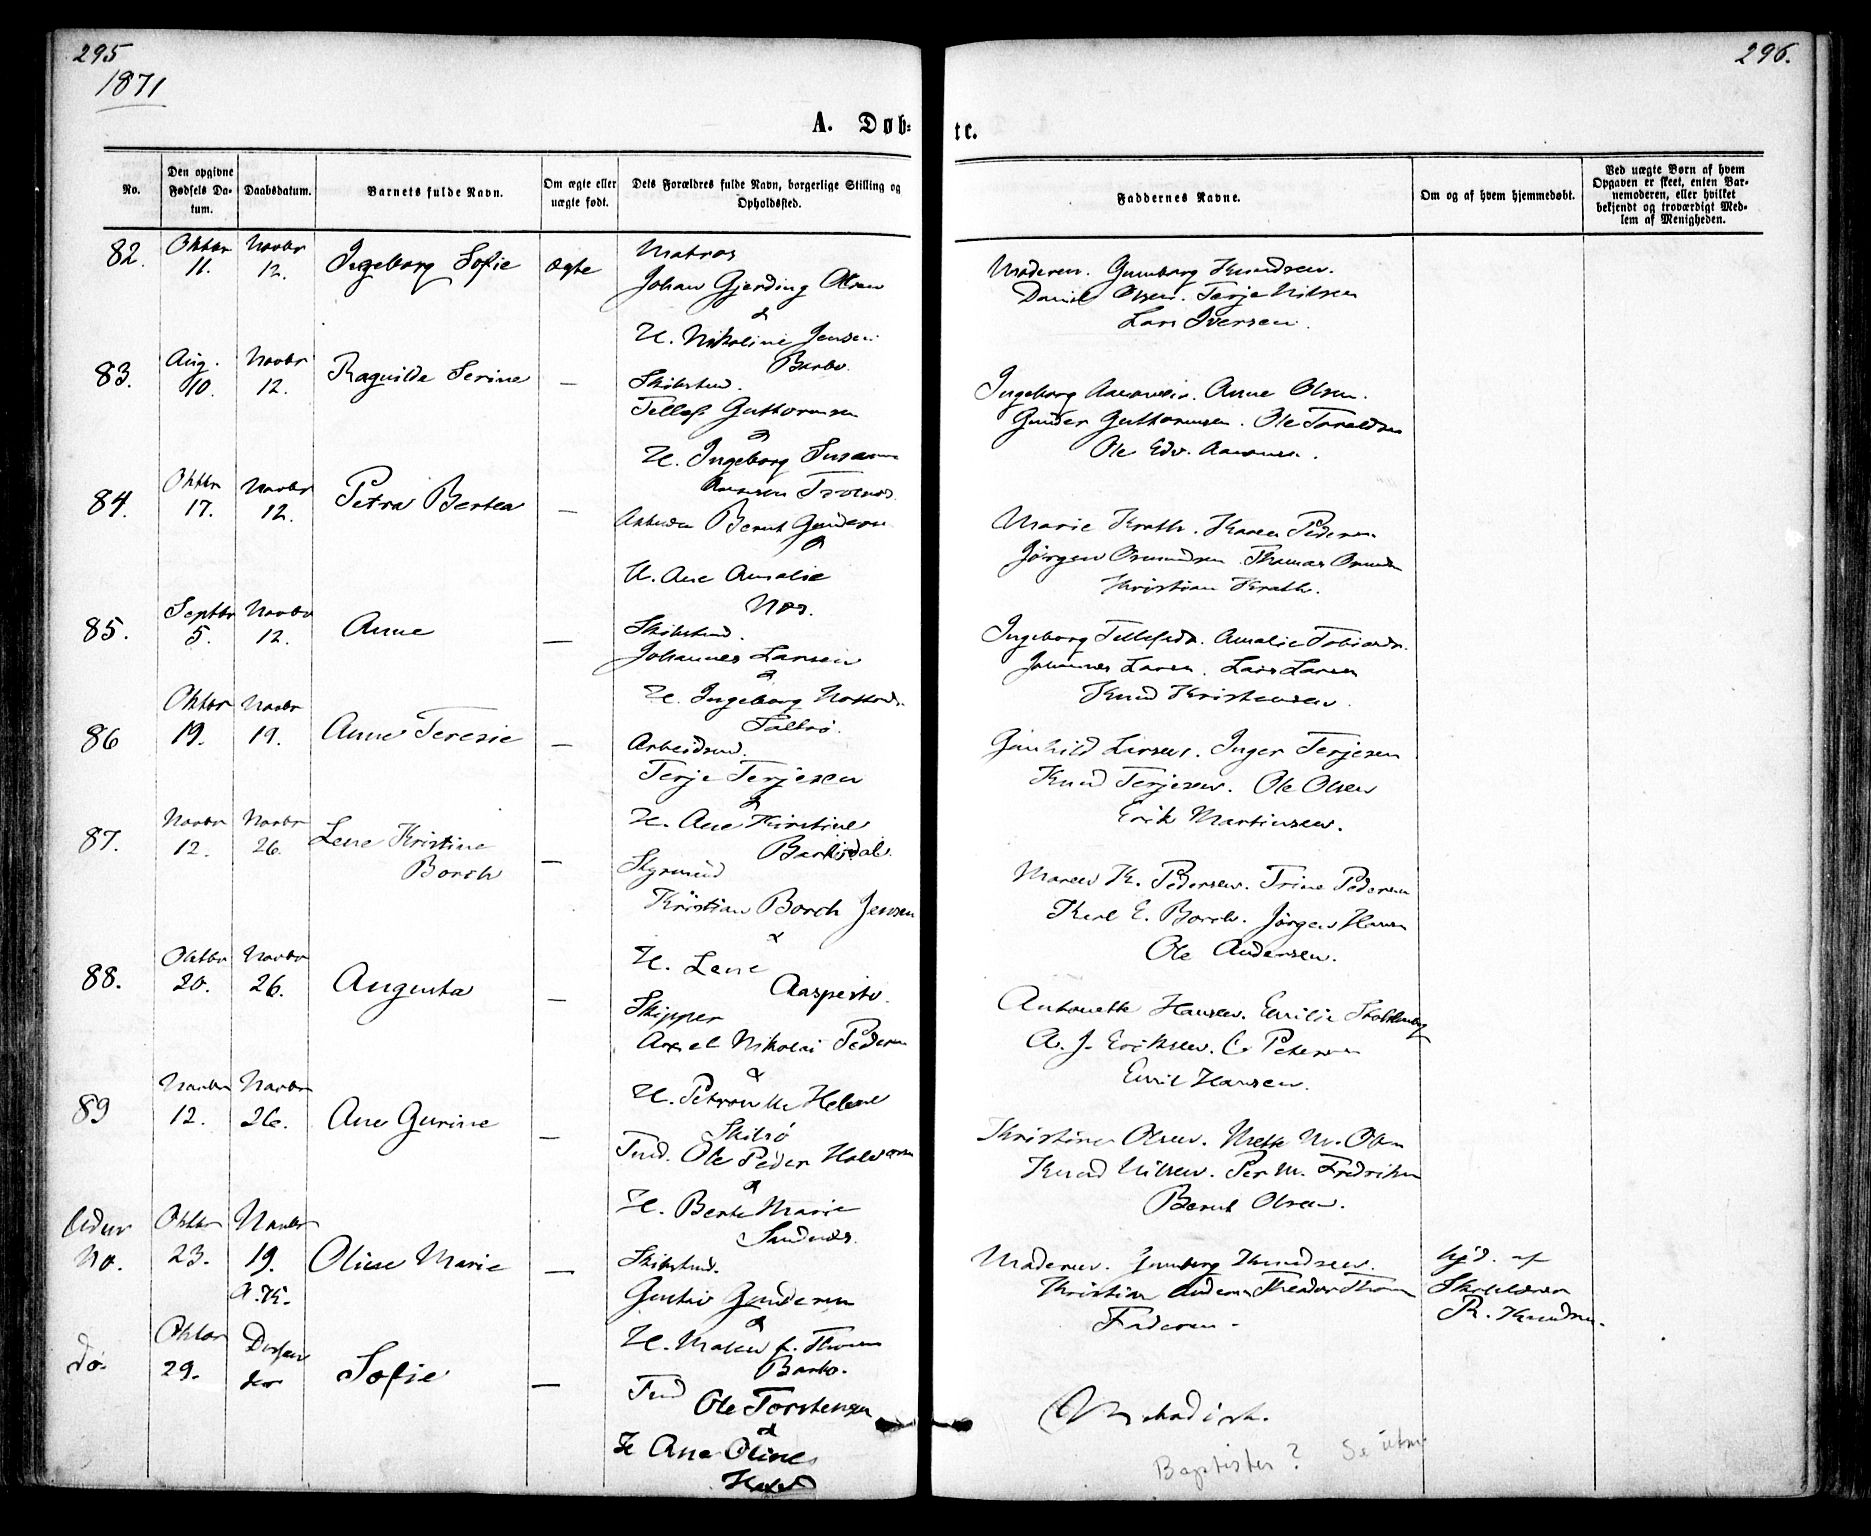 295
1871
296.
A. Døb-
te.
No.
Den opgivne Fødsels Da-
tum.
Daabsdatum.
Barnets fulde Navn.
Om ægte eller
uægte født.
Dets Forældres fulde Navn, borgerlige Stilling og
Opholdssted.
Faddernes Navne.
Om og af hvem hjemmedøbt.
Ved uægte Børn af hvem
Opgaven er skeet, enten Bar-
nemoderen, eller hvilket
bekjendt og troværdigt Med-
lem af Menigheden.
82.
Oktbr
11.
Novbr
12.
Ingeborg Sofie
ægte
Matros
Johan Gjerding Olsen
&
H. Nikoline Jensen
Barbo.
Moderen. Gunborg Knudsen.
Daniel Olsen. Terje Nilsen
Lars Iversen.
83.
Aug.
10.
Novbr
12.
Ragnilde Serine
—
Skibstmd.
Tellef Guttormsen
&
H. Ingeborg Susanne
Ingeborg Aanonsen. Anne Olsen.
Gunder Guttormsen. Ole Taraldsen
Ole Edv. Aanonsen.
84.
Oktbr
17.
Novbr
12.
Petra Bertea
—
Bernt Gundersen
&
H. Ane Amalie
Næs.
Marie Krath. Karen Pedersen
Jörgen Osmundsen Thomas Osmundsen
Kristian Krath.
85.
Septbr
5.
Novbr
12.
Anne
—
Skibstmd.
Johannes Larsen
&
H. Ingeborg
Ingeborg Tellefsdr. Amalie Tobiasdr.
Johannes Larsen. Lars Larsen
Knud Kristensen.
86
Oktbr
19.
Novbr
19.
Anne Teresie
—
Arbeidsmd.
Terje Terjesen
&
H. Ane Kirstine
Gunhild Larsen. Inger Terjesen
Knud Terjesen. Ole Olsen
Erik Martinsen.
87.
Novbr
12.
Novbr
26.
Lene Kristine
Borch
—
Styrmand
Kristian Borch Jensen
&
H. Lene
Maren K. Pedersen. Trine Pedersen
Karl E. Borch. Jörgen Hansen
Ole Andersen.
88.
Oktbr
20.
Novbr
26.
Augusta
—
Skipper
Axel Nikolai Pedersen
&
H. Petronelle Helene
Skilsø
Antonette Hansen. Emilie Stoltenberg
A. J. Eriksen. C. Petersen
Emil Hansen.
89
Novbr
12.
Novbr
26.
Ane Gurine
—
Tmd. Ole Peder Halvorsen
&
H. Berte Marie
Sandnæs.
Kristine Olsen. Mette M. Olsen
Knud Nilsen. Per M. Fredriksen
Bernt Olsen.
Uden
No.
Oktbr
23.
Novbr
19.
A.K.
Oline Marie
—
Skibstmd.
Gustav Gundersen
&
Barbo.
Moderen. Gunborg Knudsen.
Kristian Andersen
Faderen.
hjd. af
Skolelærer
R. Knudsen.
do.
Oktbr
29.
Desem
ber
Sofie
—
Tmd
Ole Torstensen
&
H Ane Oline
Methodist.
Baptister? Se